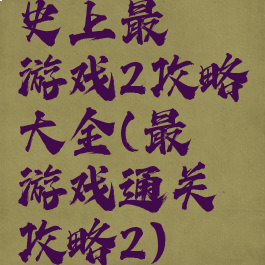 史上最
游戏2攻略
大全(最
游戏通关
攻略2)